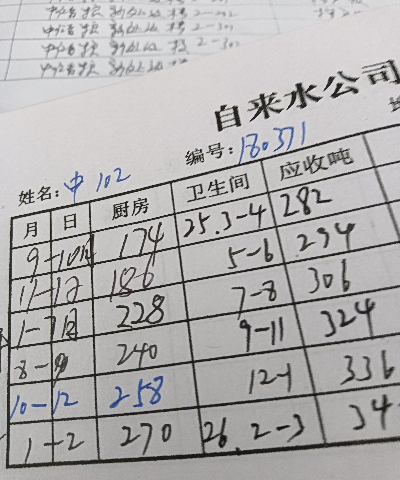 2-302
自来水公司
姓名：中 102
编号：180371
月 日 厨房 卫生间 应收吨
9-10月 174 25.3-4 282
11-12 186 5-6 294
1-7月 228 7-8 306
8-9 240 9-11 324
10-12 258 12-1 336
1-2 270 26.2-3 34